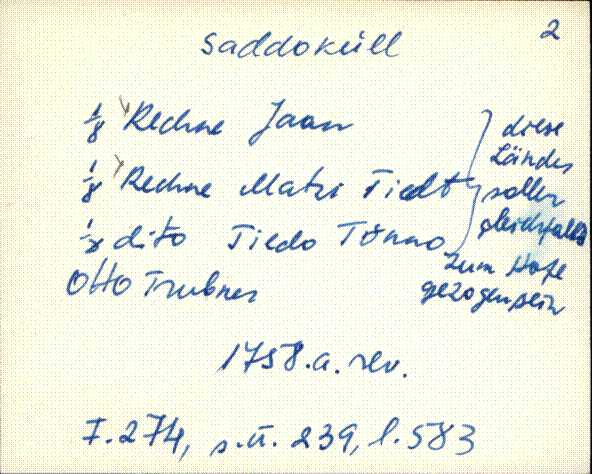 2
Saddoküll
1/8 Rechne Jaan
1/8 Rechne Matzi Tiedt
1/8 dito Tiedo Tönno
Otto Trubner
diese
Länder
sollen
gleichfalls
zum Hofe
gezogen sein
1758.a. rev.
F.274, s.ü. 239, l.583